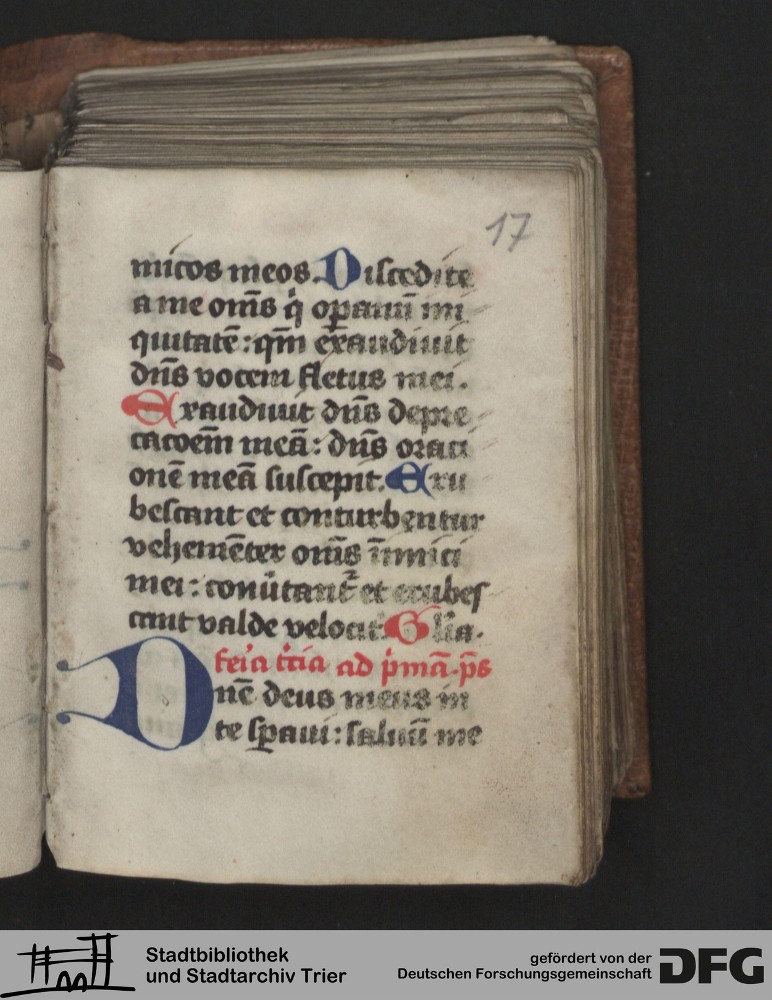 17
micos meos. Discedite
a me om̄s q̇ op̱anū ini
quitatē : qm̄ exaudiuit
dn̄s vocem fletus mei.
Exaudiuit dn̄s depre
cacoēm meā : dn̄s oraci
onē meā suscepit. Eru
bescant et conturbentur
vehemēter om̄s īimici
mei : conūtant᷑ et erubes
cant valde velocit᷑. Gl̄ia.
feīa t̄cia ad p̄mā. p̄s
Dnē deus meus in
te sp̱aui : saluū me
Stadtbibliothek
und Stadtarchiv Trier
gefördert von der
Deutschen Forschungsgemeinschaft
DFG